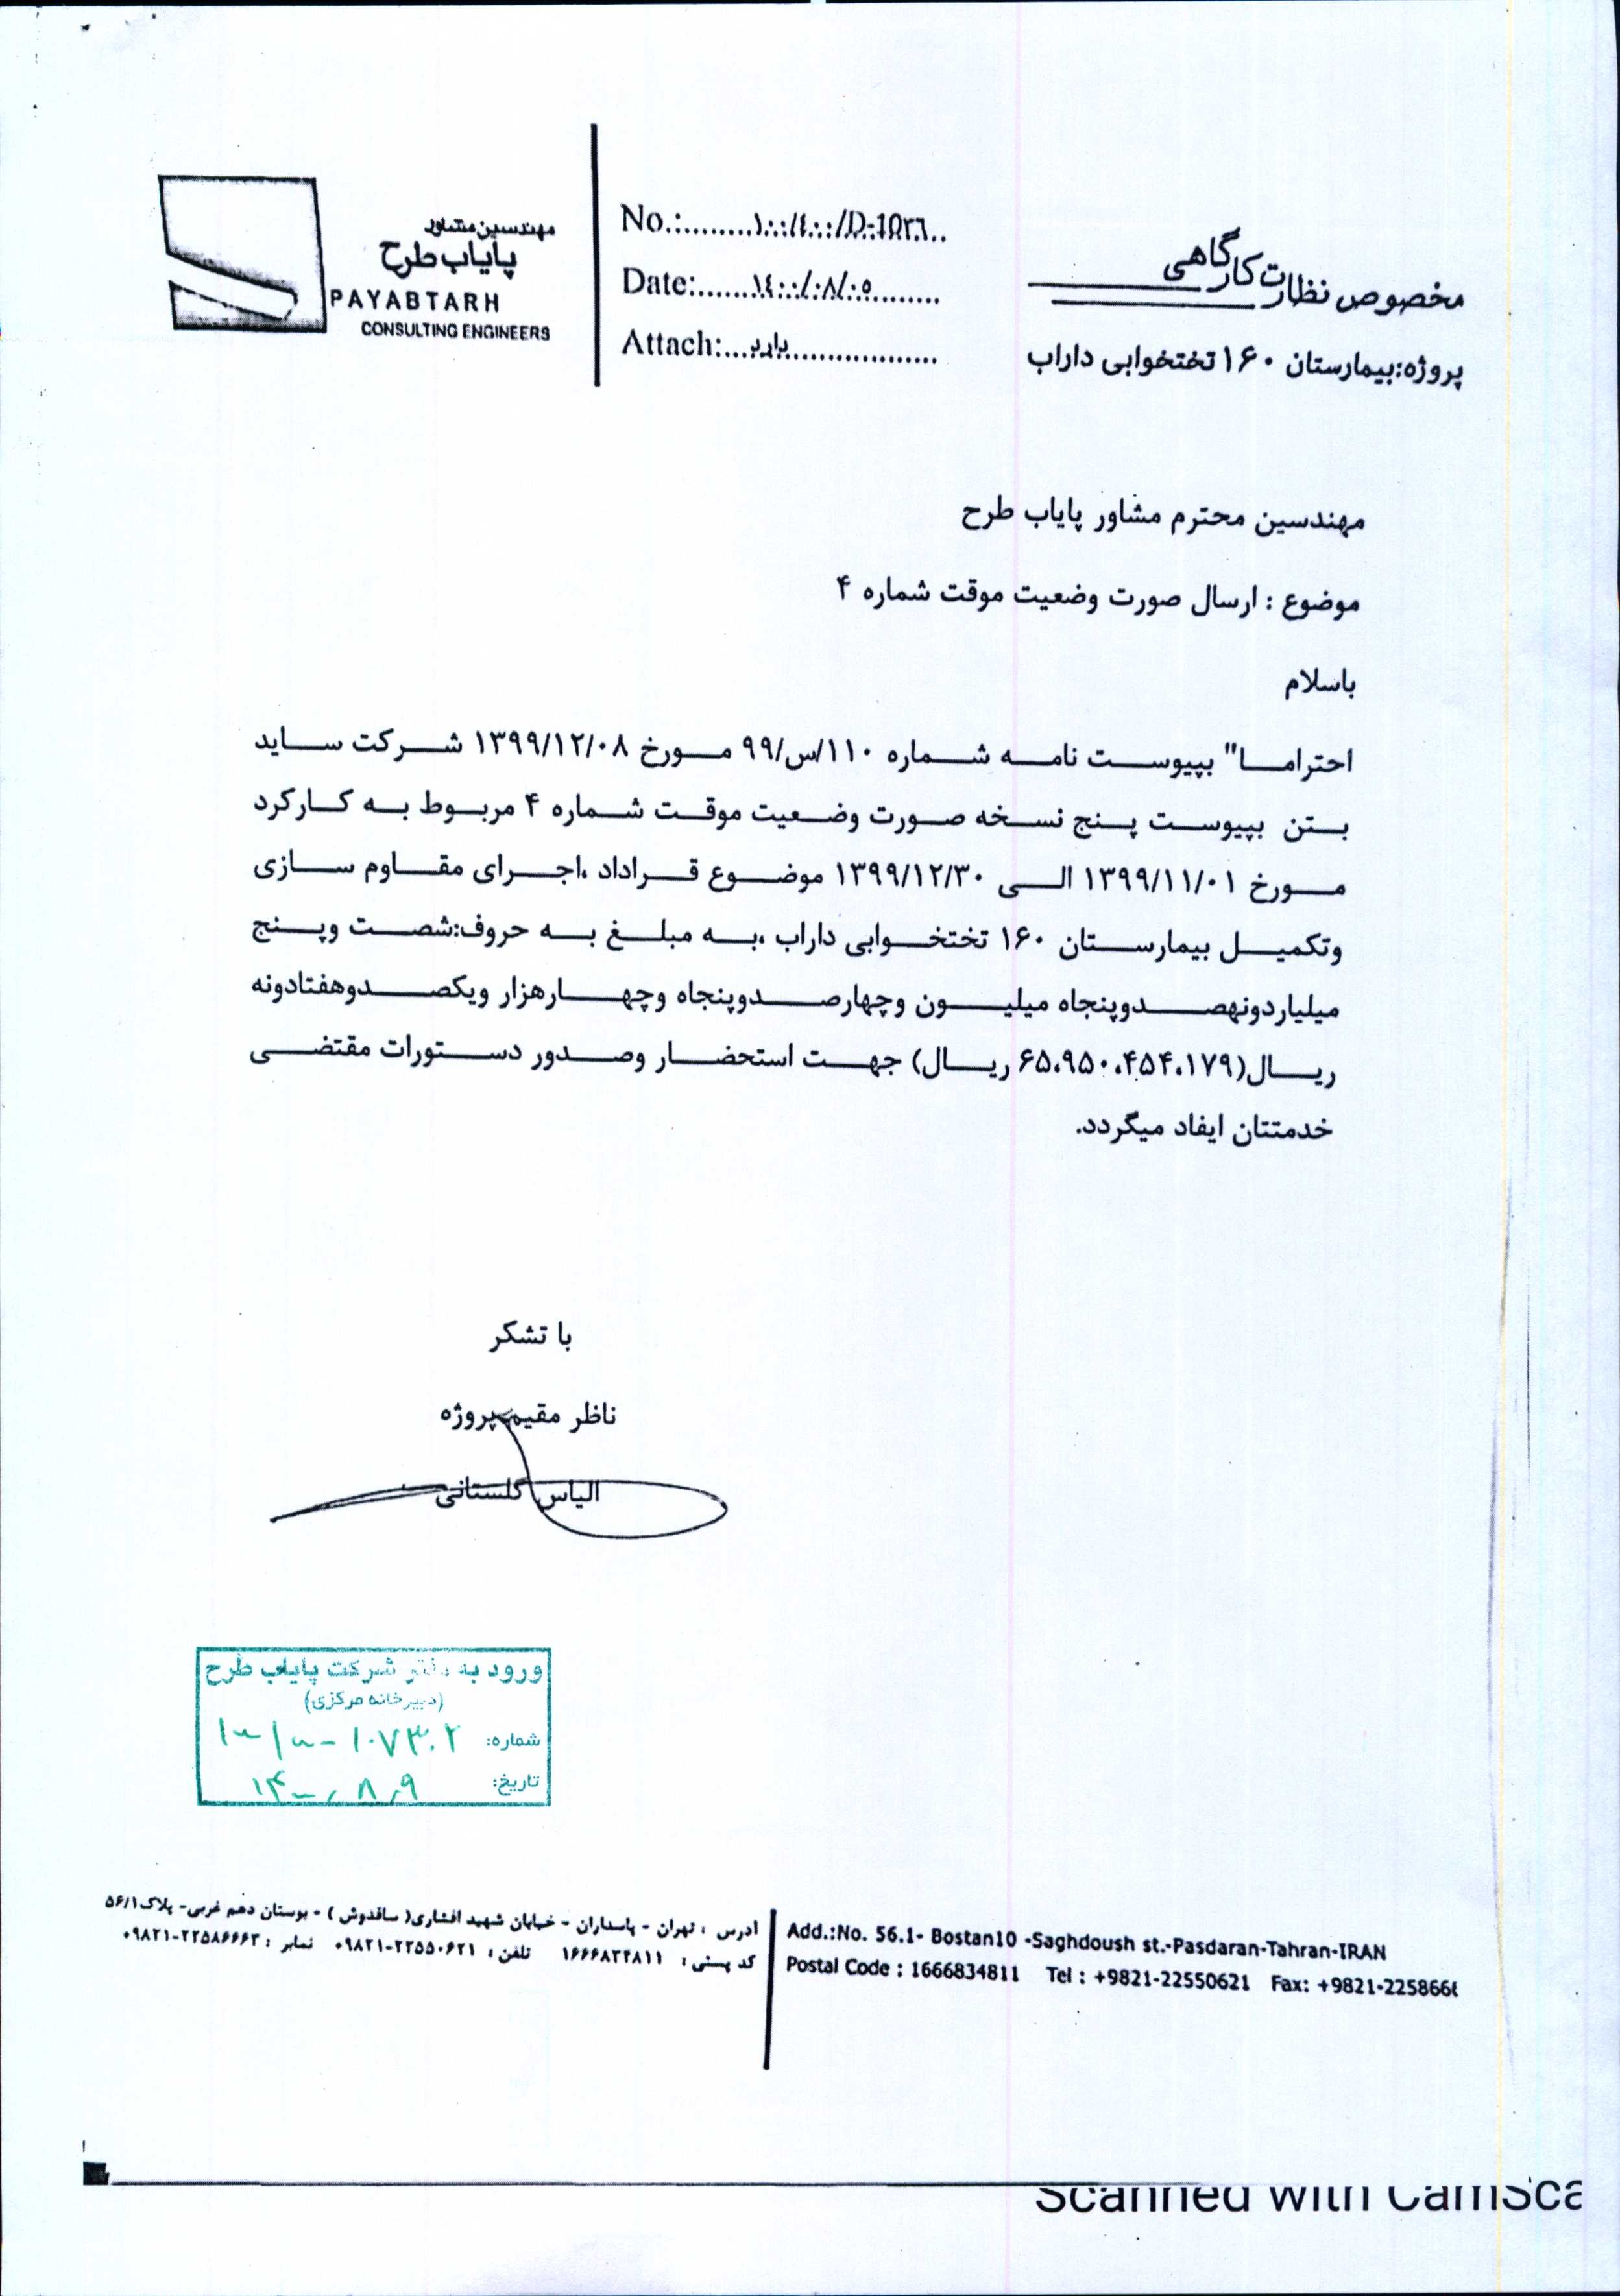 مهندسین مشاور
پایاب طرح
PAYABTARH
CONSULTING ENGINEERS
No.:........١٠٠/٤٠٠/D-١٥٢٦..
Date:.......١٤٠٠/٠٨/٠٥.........
Attach:....دارد....................
مخصوص نظارت کارگاهی
پروژه:بیمارستان ۱۶۰ تختخوابی داراب
مهندسین محترم مشاور پایاب طرح
موضوع : ارسال صورت وضعیت موقت شماره ۴
باسلام
احتراما" بپیوست نامه شماره ۱۱۰/س/۹۹ مورخ ۱۳۹۹/۱۲/۰۸ شرکت ساید
بتن بپیوست پنج نسخه صورت وضعیت موقت شماره ۴ مربوط به کارکرد
مورخ ۱۳۹۹/۱۱/۰۱ الی ۱۳۹۹/۱۲/۳۰ موضوع قراداد ،اجرای مقاوم سازی
وتکمیل بیمارستان ۱۶۰ تختخوابی داراب ،به مبلغ به حروف:شصت وپنج
میلیاردونهصدوپنجاه میلیون وچهارصدوپنجاه وچهارهزار ویکصدوهفتادونه
ریال(۶۵،۹۵۰،۴۵۴،۱۷۹ ریال) جهت استحضار وصدور دستورات مقتضی
خدمتتان ایفاد میگردد.
با تشکر
ناظر مقیم پروژه
الیاس گلستانی
ورود به دفتر شرکت پایاب طرح
(دبیرخانه مرکزی)
شماره: ۱۰۷۳۰۲
تاریخ: ۱۴۰۰/۸/۹
ادرس : تهران - پاسداران - خیابان شهید افشاری( ساقدوش ) - بوستان دهم غربی- پلاک۵۶/۱
کد پستی : ۱۶۶۶۸۳۴۸۱۱ تلفن : ۰۹۸۲۱-۲۲۵۵۰۶۲۱ نمابر : ۰۹۸۲۱-۲۲۵۸۶۶۶۳
Add.:No. 56.1- Bostan10 -Saghdoush st.-Pasdaran-Tahran-IRAN
Postal Code : 1666834811 Tel : +9821-22550621 Fax: +9821-2258666
Scanned with CamSca